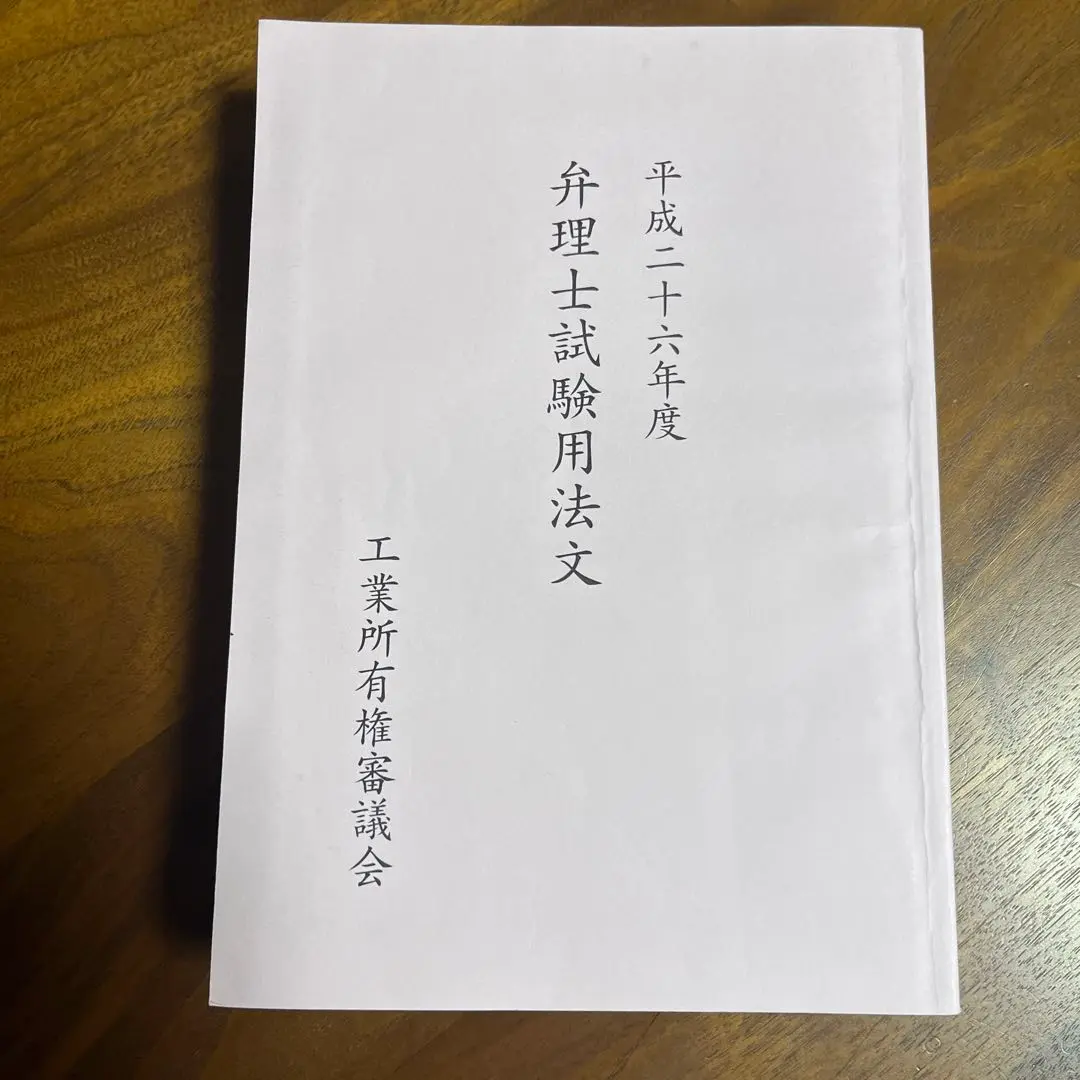 平成二十六年度
弁理士試験用法文
工業所有権審議会